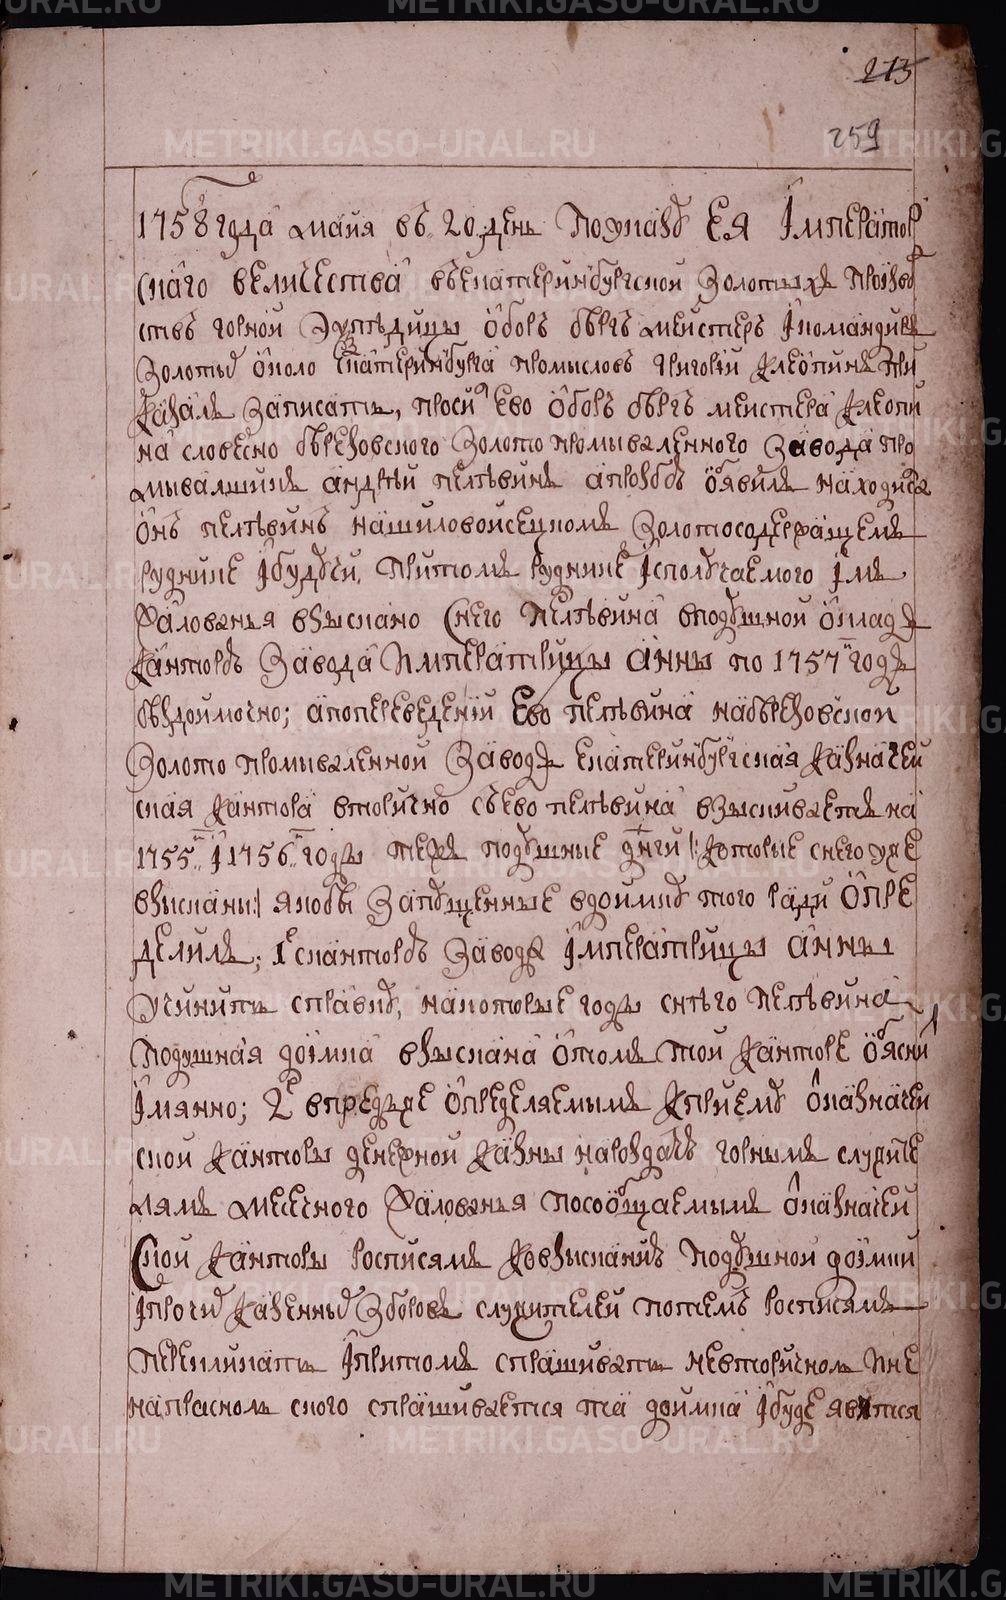 213
259
1758 года майя въ 20 день по указу ЕЯ Император
скаго величества въ екатеринбургской золотыхъ произво
ствъ горной экспедицы оберъ бергъ мейстеръ и командиръ
золоты(х) около екатеринбурга промысловъ григорей клеопинъ при
казалъ записать, проси(л) ево оберъ бергъ мейстера клеопи
на словесно березовского золото промываленного завода про
мывалщикъ андрей пелевинъ а про что объявилъ находился
онъ пелевинъ на шиловоисецкомъ золотосодержащемъ
руднике и будучи при томъ руднике ис получаемого имъ
жалованья взыскано с него пелевина в подушной окладъ
кантору завода императрицы анны по 1757 годъ
бездоимочно; а по переведении ево пелевина на березовской
золото промываленной заводъ екатеринбургская казначей
ская кантора вторично съ ево пелевина взыскивается на
1755 и 1756 годы техъ подушные днги /: которые с него уже
взысканы :/ якобы запущенные в доимку того ради опре
делилъ; 1е с канторы завода императрицы анны
учинить справку, на которые годы с него пелевина
подушная доимка взыскана о томъ той канторе объясни(т)
имянно; 2е впредь же определяемымъ к приему о казначей
ской канторы денежной казны на роздачъ горнымъ служите
лямъ месечного жалованья по сообщаемымъ о казначей
ской канторы росписямъ ко взысканию подушной доимки
и прочи(х) казенны(х) зборовъ служителей по темъ росписямъ
перекликать и при томъ спрашивать не вторично ль и не
напрасно ль с кого спрашивается та доимка и буде явится